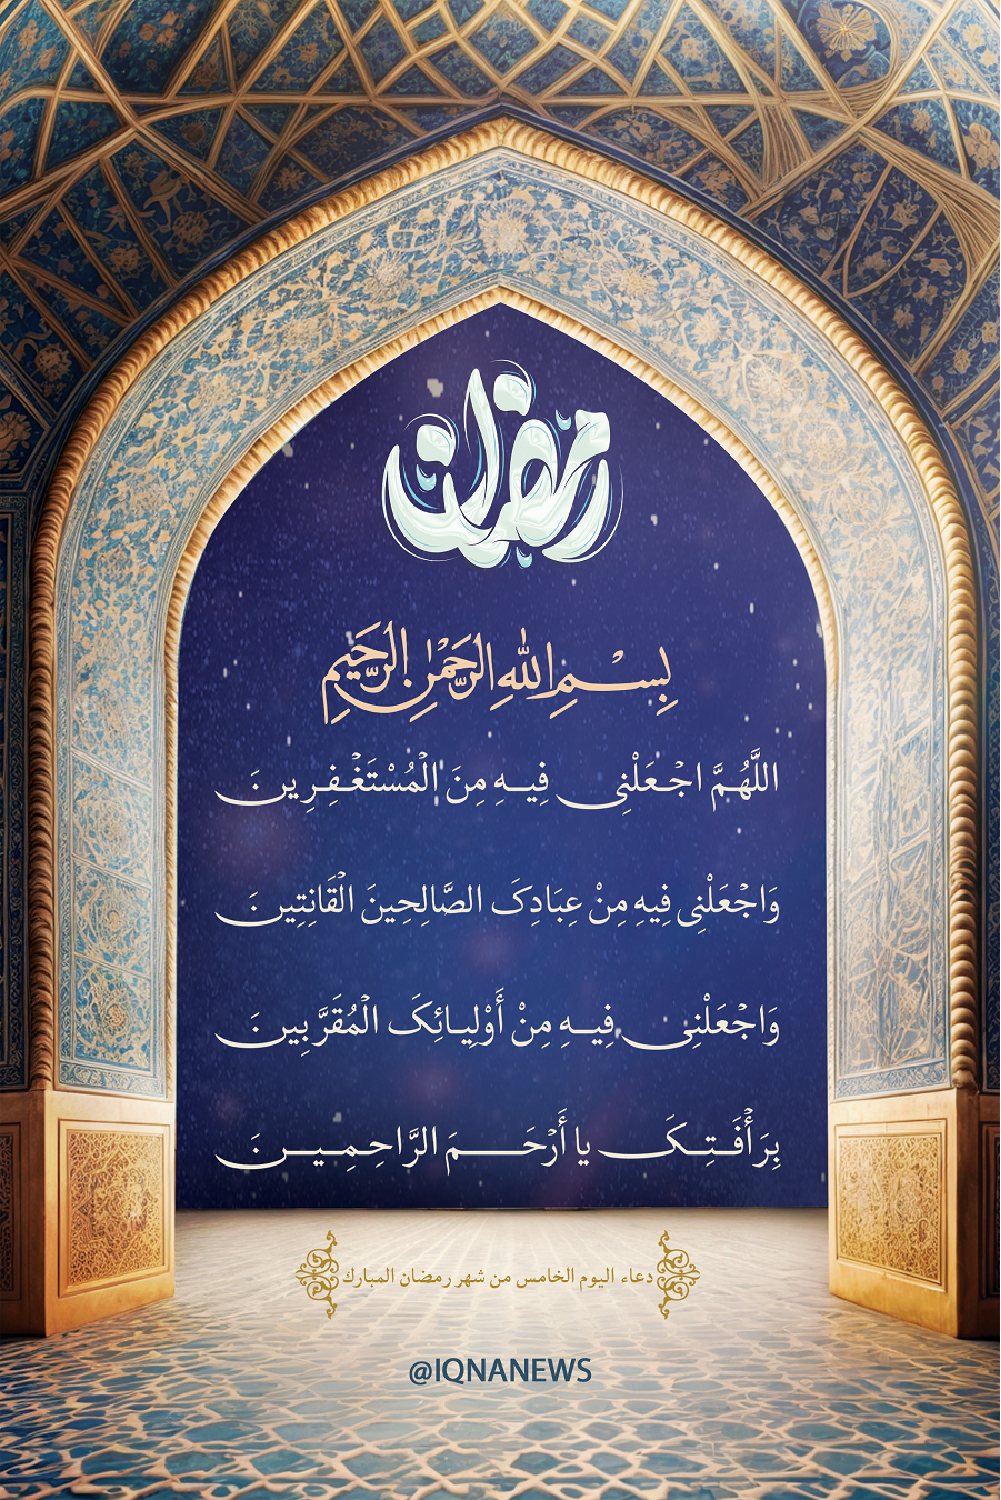 رمضان
بِسْمِ اللهِ الرَّحْمٰنِ الرَّحِيمِ
اللَّهُمَّ اجْعَلْنِی فِيهِ مِنَ الْمُسْتَغْفِرِينَ
وَاجْعَلْنِی فِيهِ مِنْ عِبَادِکَ الصَّالِحِينَ الْقَانِتِينَ
وَاجْعَلْنِی فِيهِ مِنْ أَوْلِيائِکَ الْمُقَرَّبِينَ
بِرَأْفَتِکَ يا أَرْحَمَ الرَّاحِمِينَ
دعاء اليوم الخامس من شهر رمضان المبارك
@IQNANEWS